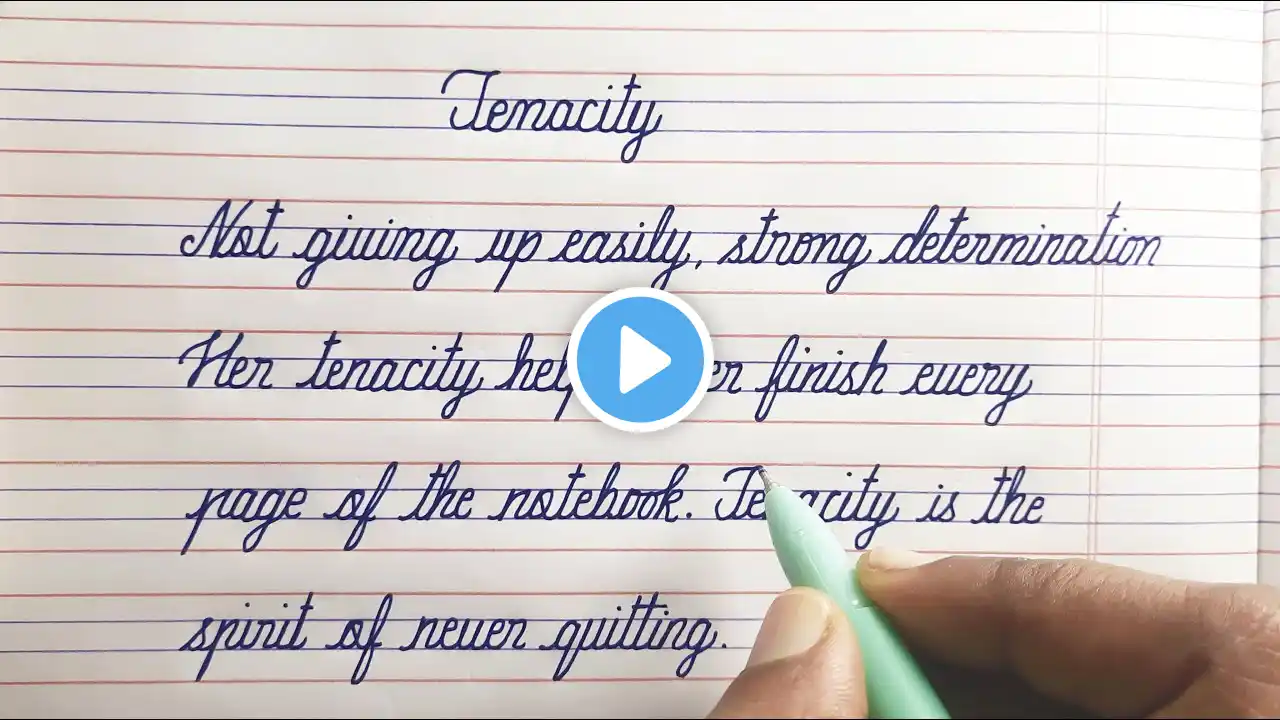 Tenacity
Not giving up easily, strong determination
Her tenacity finish every
page of the notebook. Tenacity is the
spirit of never quitting.